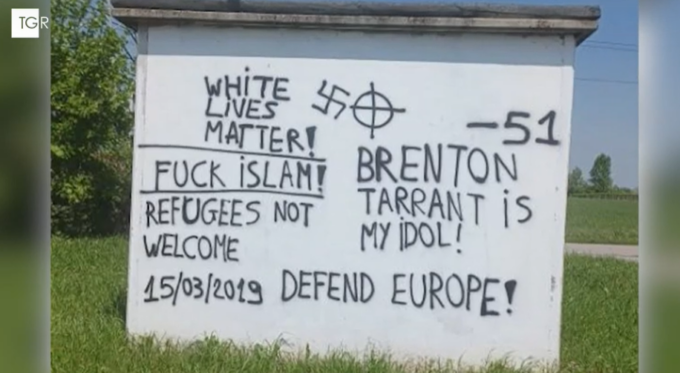 TGR
WHITE
LIVES
MATTER!
FUCK ISLAM!
REFUGEES NOT
WELCOME
15/03/2019 DEFEND EUROPE!
-51
BRENTON
TARRANT iS
MY iDOL!